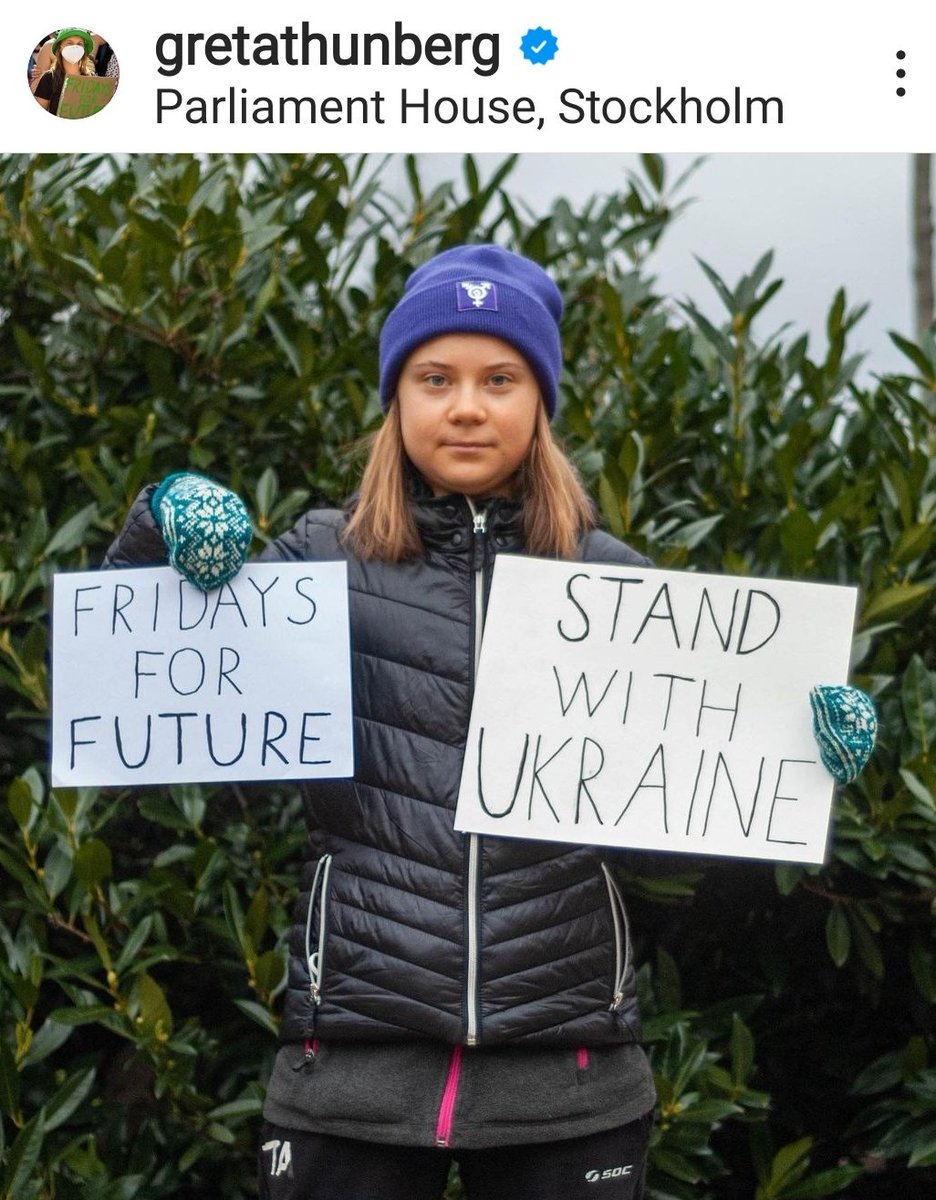 gretathunberg
Parliament House, Stockholm
FRIDAYS
FOR
FUTURE
STAND
WITH
UKRAINE
TA
SOC